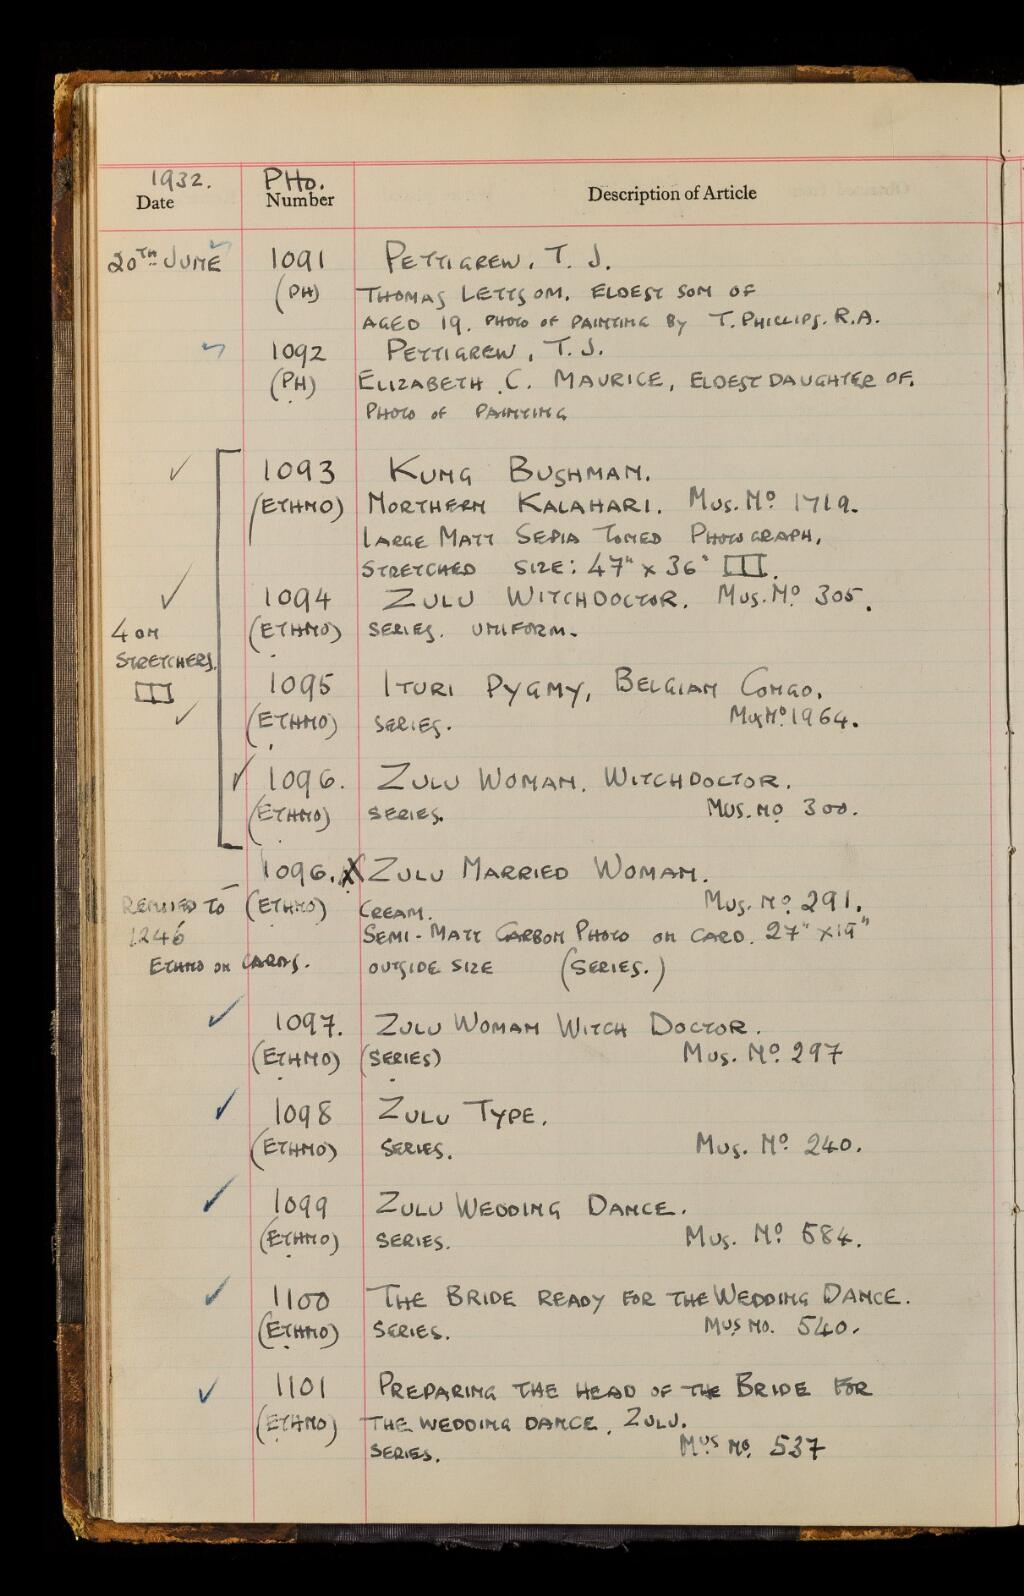 1932. PHO.
Date Number Description of Article
20TH JUNE 1091 PETTIGREW, T. J.
(PH) THOMAS LETTSOM, ELDEST SON OF
AGED 19. PHOTO OF PAINTING BY T. PHILLIPS. R.A.
1092 PETTIGREW, T. J.
(PH) ELIZABETH C. MAURICE, ELDEST DAUGHTER OF.
PHOTO OF PAINTING
1093 KUNG BUSHMAN.
(ETHNO) NORTHERN KALAHARI. MUS. NO 1719.
LARGE MATT SEPIA TONED PHOTOGRAPH,
STRETCHED SIZE: 47" x 36"
1094 ZULU WITCHDOCTOR. MUS. NO 305.
(ETHNO) SERIES. UNIFORM.
4 ON
STRETCHERS.
1095 ITURI PYGMY, BELGIAN CONGO.
(ETHNO) SERIES. MUS NO. 1964.
1096. ZULU WOMAN. WITCHDOCTOR.
(ETHNO) SERIES. MUS. NO 300.
1096. X ZULU MARRIED WOMAN.
TO (ETHNO) CREAM. MUS. NO. 291.
1246 SEMI-MATT CARBON PHOTO ON CARD. 27" x 19"
ETHNO ON CARDS. OUTSIDE SIZE (SERIES.)
1097. ZULU WOMAN WITCH DOCTOR.
(ETHNO) (SERIES) MUS. NO. 297
1098 ZULU TYPE.
(ETHNO) SERIES. MUS. NO. 240.
1099 ZULU WEDDING DANCE.
(ETHNO) SERIES. MUS. NO. 584.
1100 THE BRIDE READY FOR THE WEDDING DANCE.
(ETHNO) SERIES. MUS NO. 540.
1101 PREPARING THE HEAD OF THE BRIDE FOR
(ETHNO) THE WEDDING DANCE. ZULU.
SERIES. MUS NO. 537